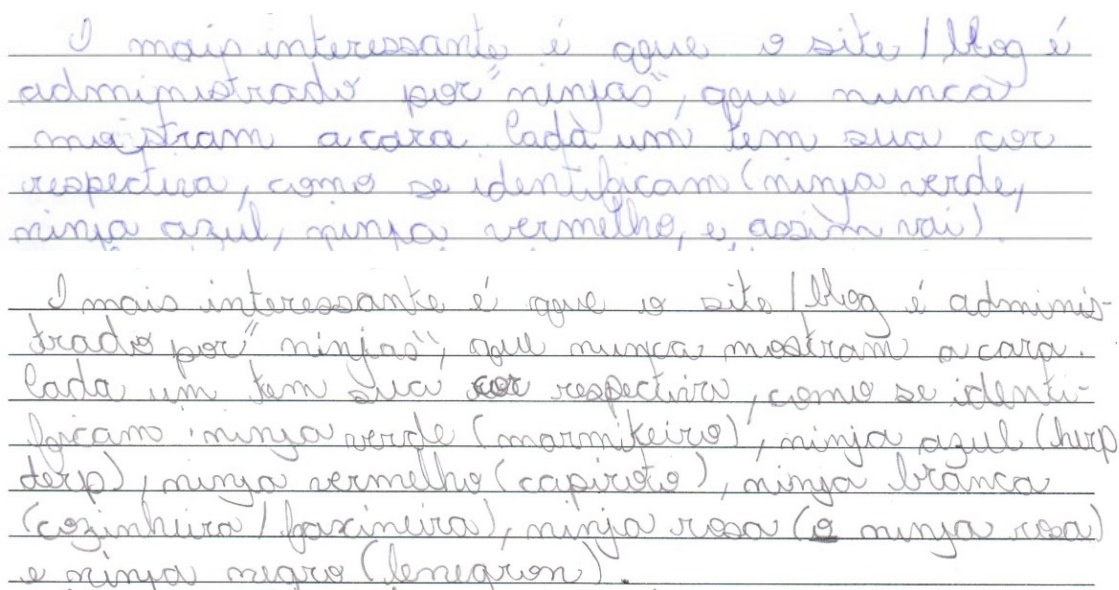 O mais interessante é que o site / blog é
administrado por "ninjas", que nunca
mostram a cara. Cada um tem sua cor
respectiva, como se identificam (ninja verde,
ninja azul, ninja vermelho, e assim vai).
O mais interessante é que o site / blog é adminis-
trado por "ninjas", que nunca mostram a cara.
Cada um tem sua cor respectiva, como se identi-
ficam: ninja verde (marmiteiro), ninja azul (hirp
derp), ninja vermelho (capiroto), ninja branca
(cozinheira / faxineira), ninja rosa (o ninja rosa)
e ninja negro (lenegron).